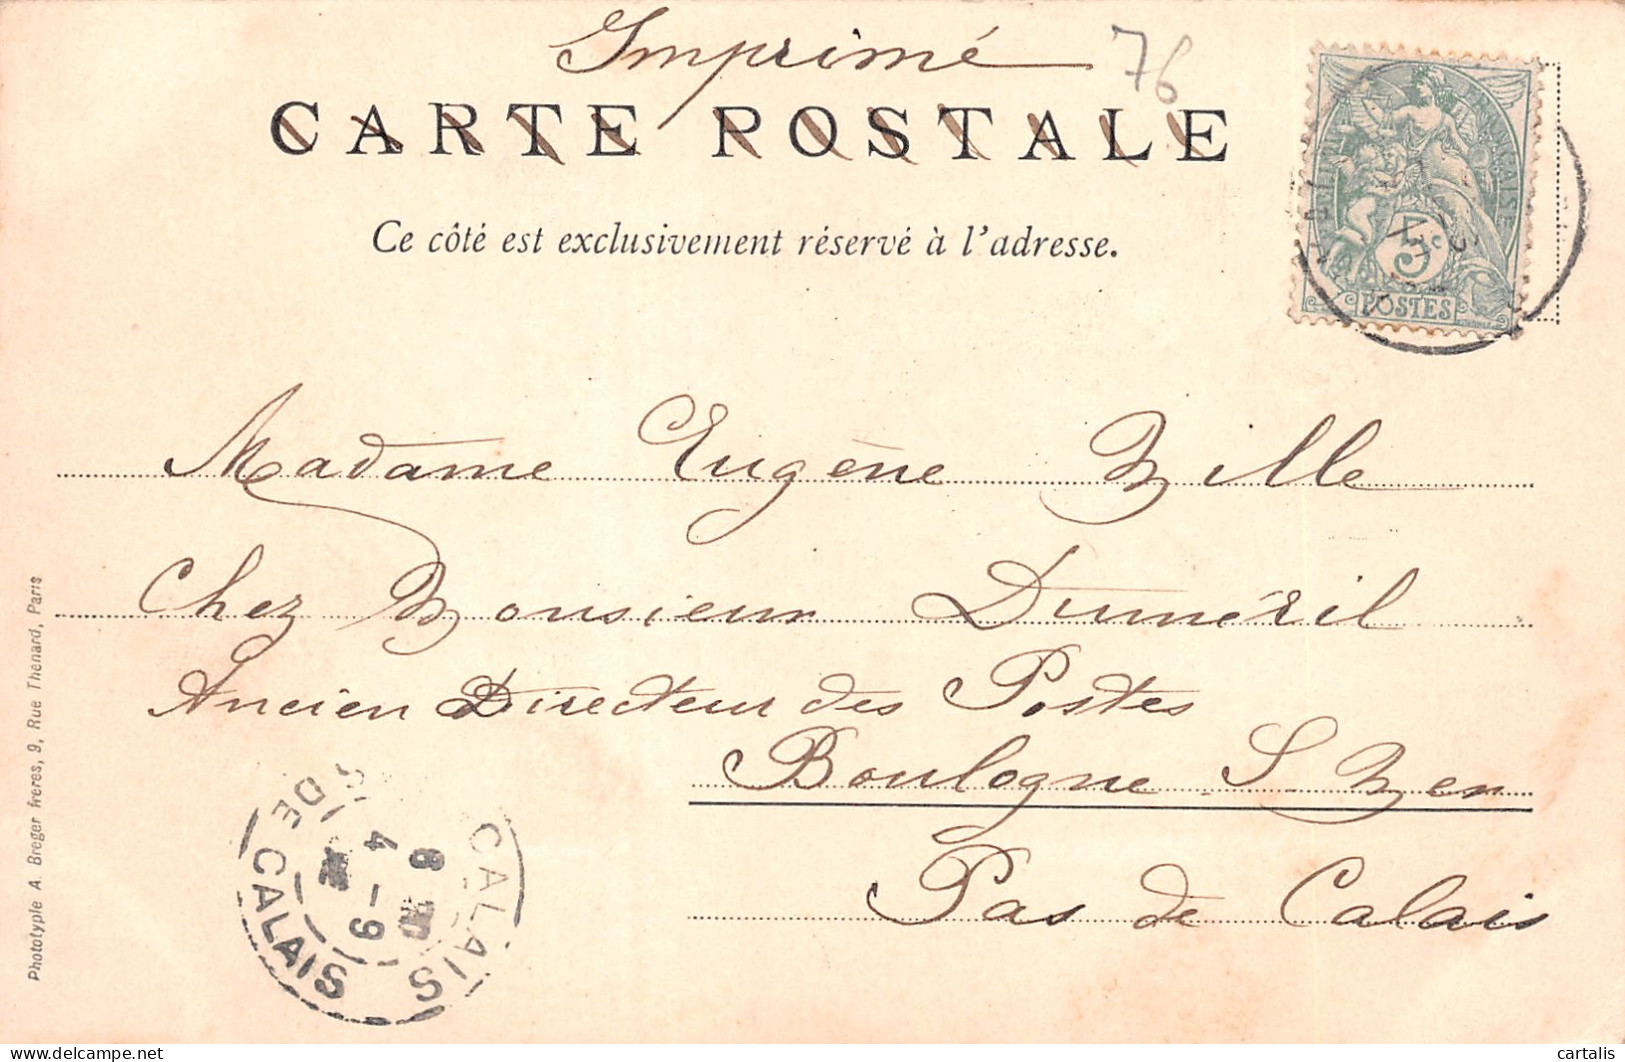 Imprimé
76
CARTE POSTALE
Ce côté est exclusivement réservé à l'adresse.
5c
POSTES
Madame Eugène Bille
Chez Monsieur Duméril
Ancien Directeur des Postes
Boulogne S Mer
Pas de Calais
CALAIS
8
4 - 9
S. DE CALAIS
Phototypie A. Breger frères, 9, Rue Thenard, Paris
cartalis